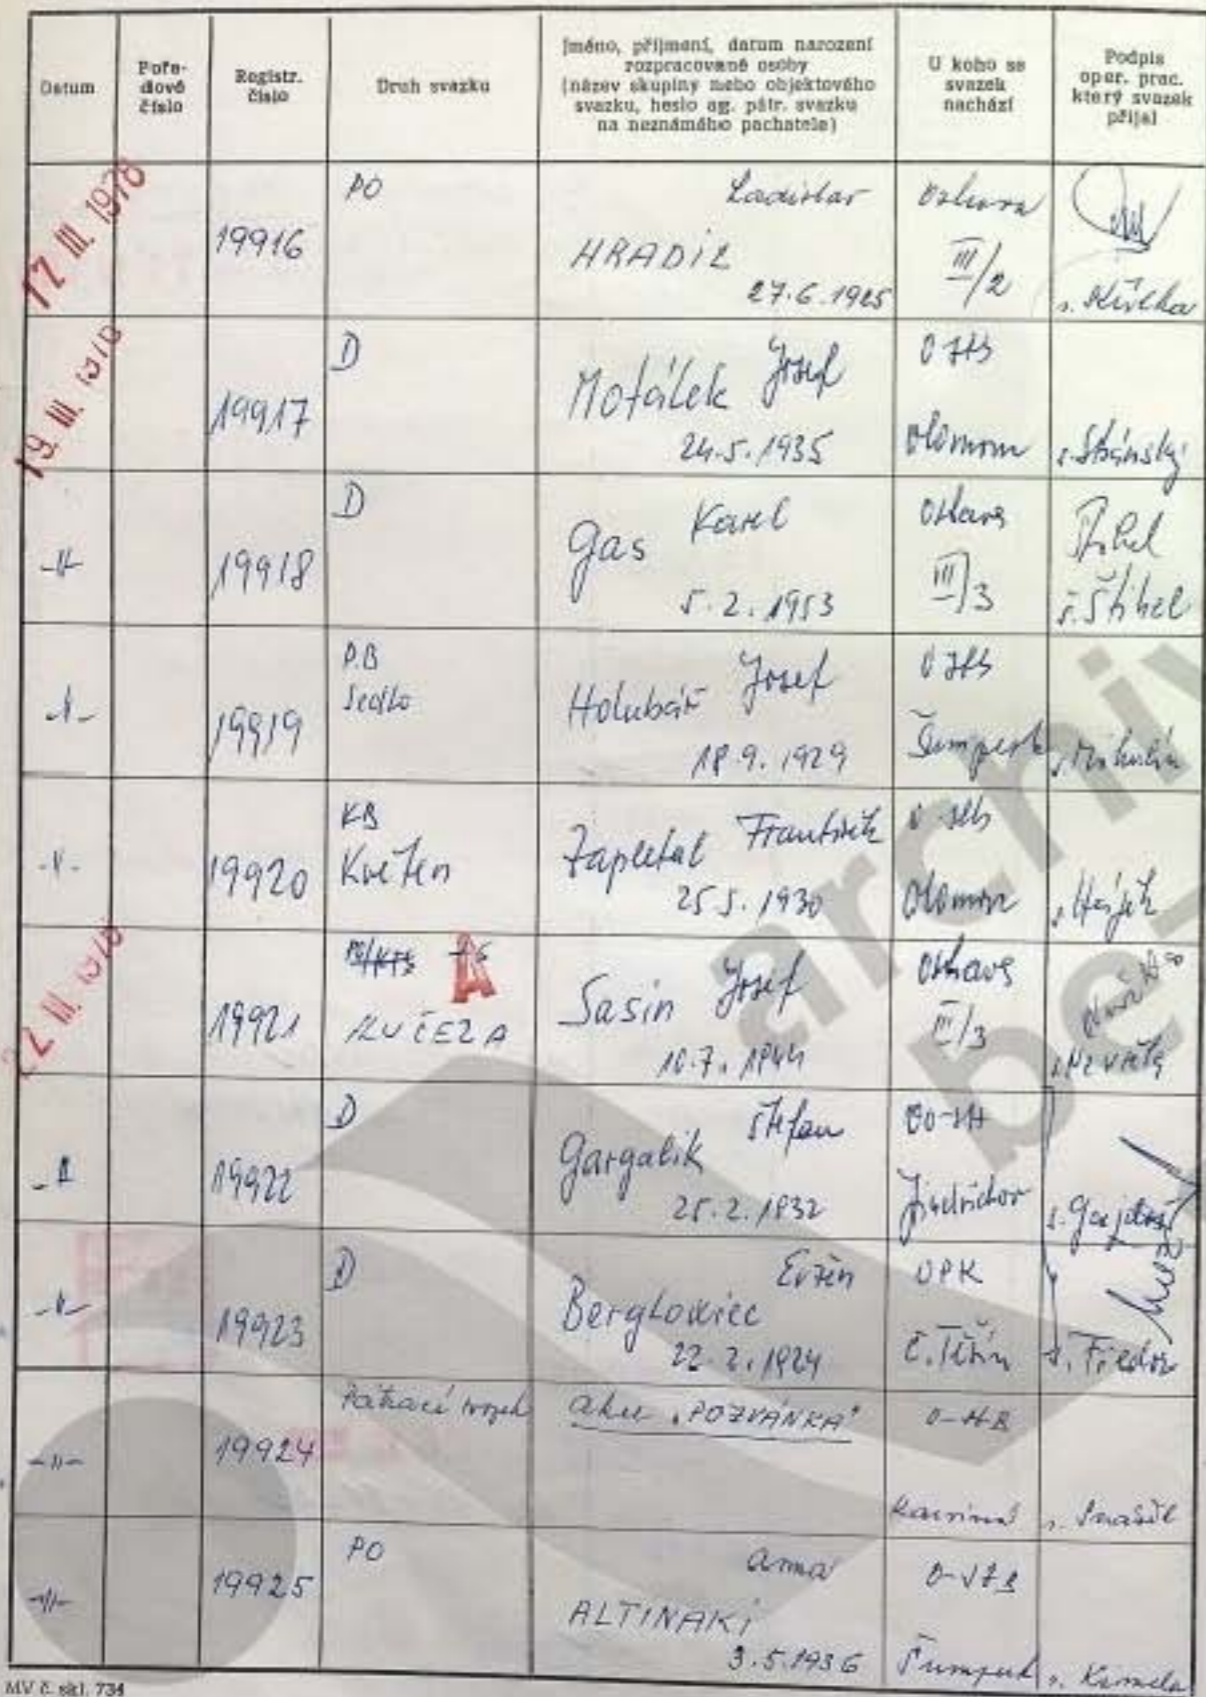 Datum
Pořa-
dové
číslo
Registr.
číslo
Druh svazku
Jméno, příjmení, datum narození
rozpracované osoby
(název skupiny nebo objektového
svazku, heslo ag. pátr. svazku
na neznámého pachatele)
U koho se
svazek
nachází
Podpis
oper. prac.
který svazek
přijal
17. III. 1978
19916
PO
Ladislav
HRADIL
27.6.1925
Ostrava
III/2
19. III. 1978
19917
D
Motálek Josef
24.5.1935
Olomouc
s. Stránský
-"-
19918
D
Gas Karel
5.2.1953
Ostrava
III/3
s. Štihel
-"-
19919
P.B
Sedlo
Holubář Josef
18.9.1929
Šumperk
-"-
19920
KB
Květen
Zapletal František
25.5.1930
Olomouc
s. Hájek
III.
19921
A
Sasín Josef
10.7.1944
Ostrava
III/3
-"-
19922
D
Gargalík Štefan
25.2.1932
s. Gajdoš
-"-
19923
D
Evžen
Berglowiec
22.2.1924
OPK
Č. Těšín
s. Fiedor
-"-
19924
Pátrací svazek
akce "POZVÁNKA"
Karviná
-"-
19925
PO
ALTINAKI
3.5.1936
Šumperk
s. Kamela
MV č. skl. 734
archiv
be